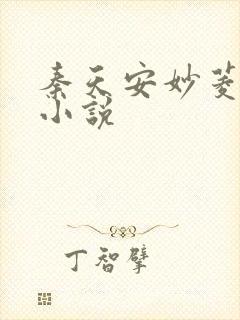 秦天安妙菱
小说
丁智擘